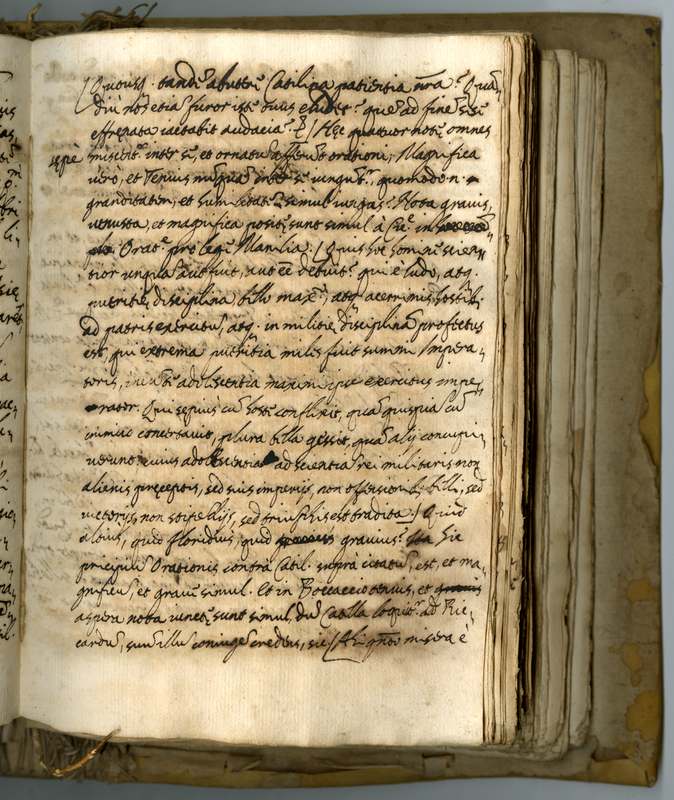 Quousq. tandē abutere Catilina patiētia nr̄a? Quā
diu nos etiā furor iste tuus eludet? quē ad finē sese
effrenata iactabit audacia? Hęc quatuor notę omnes
sępè miscent inter se, et ornatū afferūt orationi; Magnifica
uerò, et Tenuis nunquā inter se iungūt, quomodo n.
granditatem, et humilitatē simul iungas? Nota grauis,
uenusta, et magnifica positę sunt simul à Cic. in
Orat. pro lege Manilia. Quis hoc homine scien,
tior unquā aut fuit, aut eē debuit? qui è ludo, atq.
pueritię disciplina, bello max., atq. acerrimis hostib.
ad patris exercitū, atq. in militię disciplinā profectus
est, qui extrema pueritia miles fuit summi Impera,
toris, ineunte adolescentia maximi ipse exercitus impe,
rator. Qui sępius cū hoste conflixit, quā quispiā cū
inimico concertauit, plura bella gessit, quā alij concupi,
uerunt: cuius adolescentia ad scientiā rei militaris non
alienis pręceptis, sed suis imperijs, non offensionib. belli, sed
uictorijs, non stipendijs, sed triumphis est tradita. Quid
altius, quid floridius, quid grauius? Ita hic
principiū Orationis contrà Catil. suprà citatū, est, et ma,
gnificū, et graue simul. Et in Boccaccio tenuis, et
aspera nota iunctę sunt simul, dū Catella loquit. ad Ric,
cardū, suū illū coniugē credens, sic Ahi quāto misera è